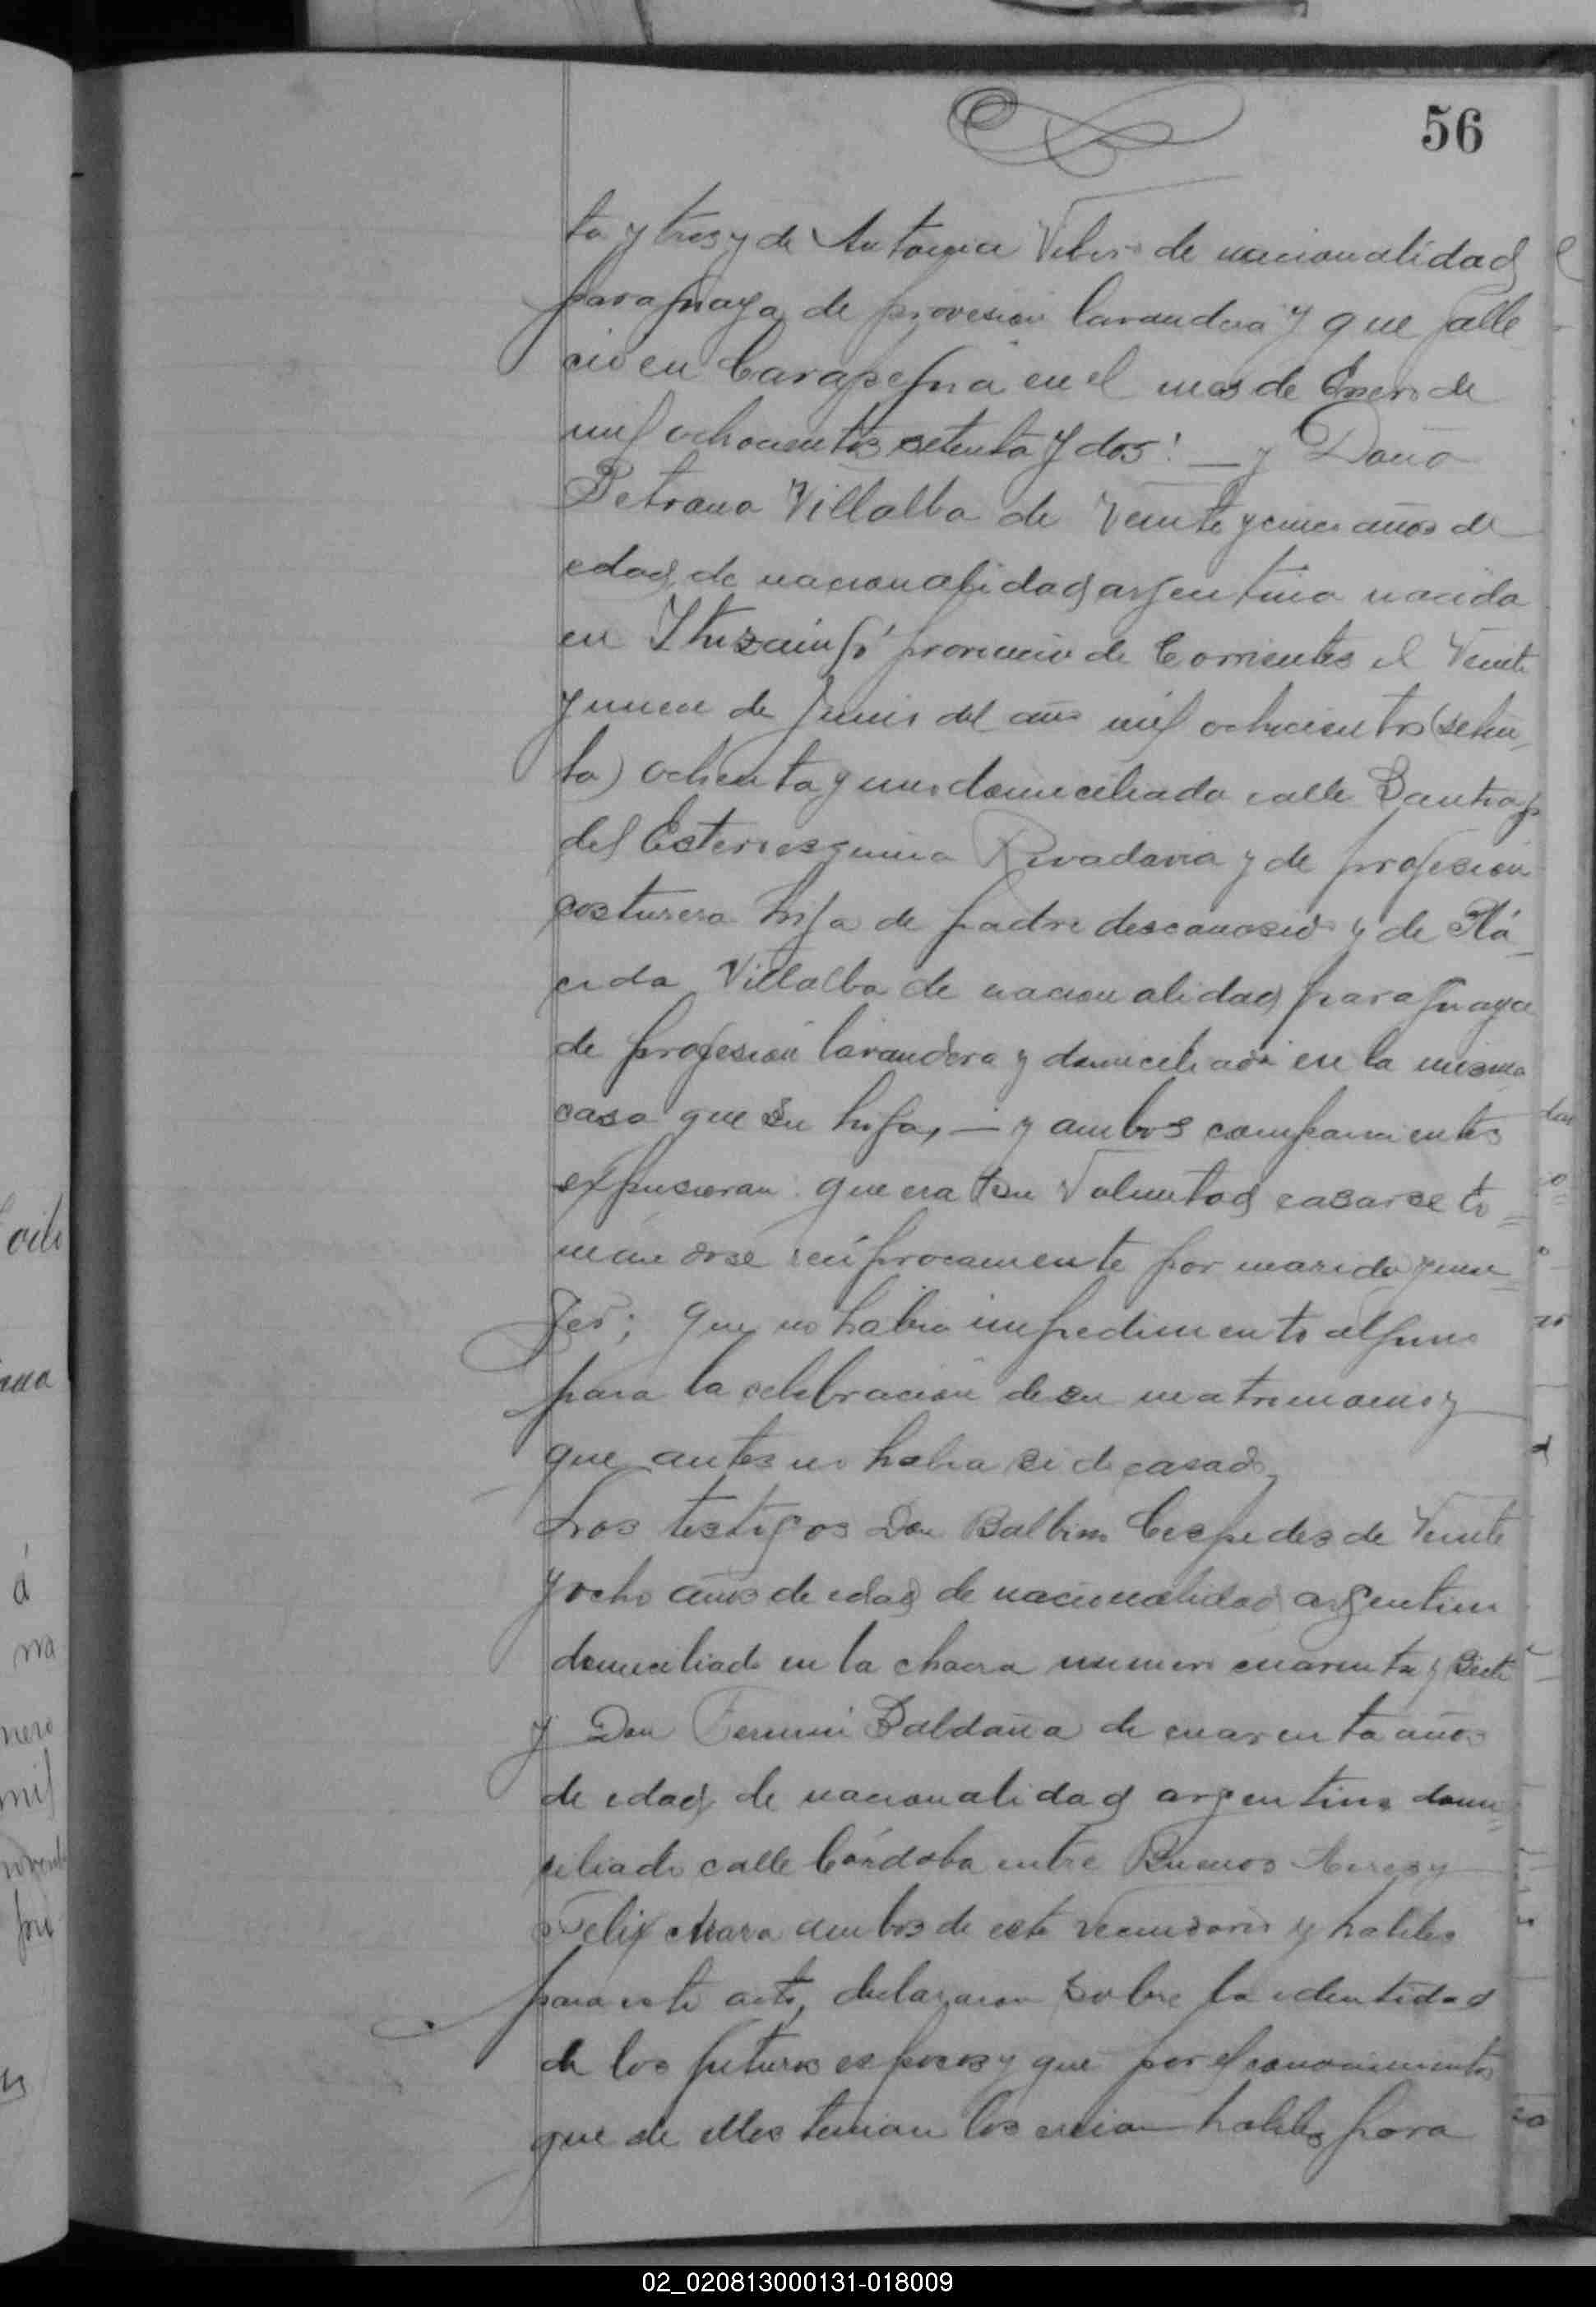 56
ta y tres y de Antonia Vebis de nacionalidad
paraguaya de provesion lavandera y que falle
cio en Carapeguá en el mes de Enero de
mil ochocientos setenta y dos! — y Doña
Petrona Villalba de veinte y cinco años de
edad, de nacionalidad argentina nacida
en Ytuzaingó provincia de Corrientes el veinte
y nueve de Junio del año mil ochocientos (seten
ta) ochenta y uno domiciliada calle Santiago
del Estero esquina Rivadavia y de profesion
costurera hija de padre desconosido y de Plá
cida Villalba de nacionalidad paraguaya
de profesion lavandera y domiciliada en la misma
casa que su hija, — y ambos comparecientes
expusieron: que era su voluntad casarse to=
mándose reciprocamente por marido y mu=
ger; que no habia impedimento alguno
para la celebracion de su matrimonio y
que antes no habia sido casado,
Los testigos Don Balbino Cespedes de veinte
y ocho años de edad de nacionalidad argentino
domiciliado en la chacra numero cuarenta y siete
y Don Fermin Saldaña de cuarenta años
de edad, de nacionalidad argentina domi=
ciliado calle Córdoba entre Buenos Aires y
Felix Azara ambos de este vecindario y habiles
para este acto, declararon sobre la identidad
de los futuros esposos y que por el conocimiento
que de ellos tenian los creian habiles para
02_020813000131-018009